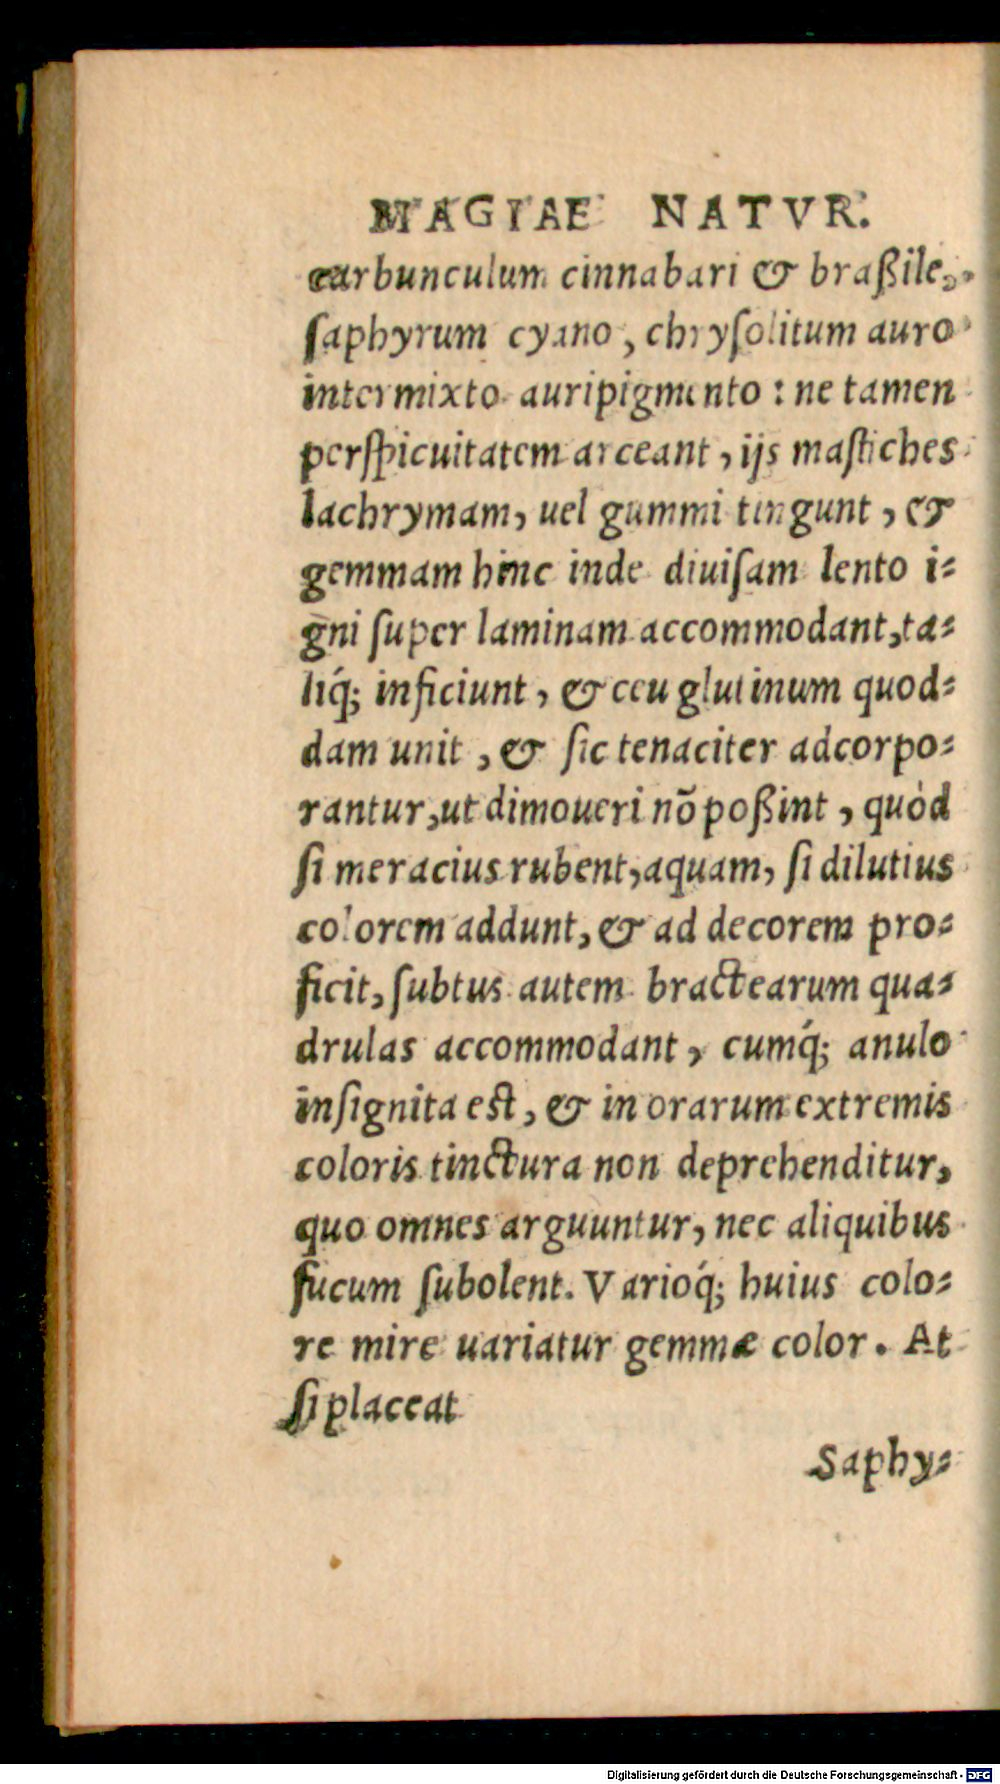 MAGIAE NATVR.
carbunculum cinnabari & braßile,
ſaphyrum cyano, chryſolitum auro
intermixto auripigmento: ne tamen
perſpicuitatem arceant, ijs maſtiches
lachrymam, uel gummi tingunt, &
gemmam hinc inde diuiſam lento i-
gni ſuper laminam accommodant, ta-
liq́; inficiunt, & ceu glutinum quod-
dam unit, & ſic tenaciter adcorpo-
rantur, ut dimoueri nõ poßint, quòd
ſi meracius rubent, aquam, ſi dilutius
colorem addunt, & ad decorem pro-
ficit, ſubtus autem bractearum qua-
drulas accommodant, cumq́; anulo
inſignita eſt, & in orarum extremis
coloris tinctura non deprehenditur,
quo omnes arguuntur, nec aliquibus
fucum ſubolent. Varioq́; huius colo-
re mire uariatur gemmæ color. At
ſi placeat
Saphy-
Digitalisierung gefördert durch die Deutsche Forschungsgemeinschaft - DFG